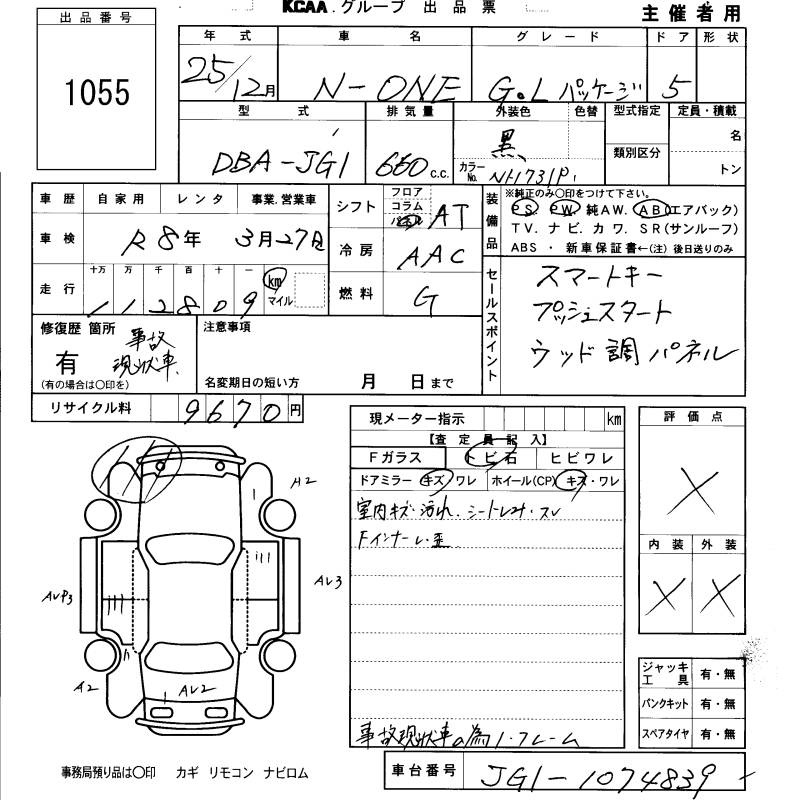 KCAA.グループ 出品票
主催者用
出品番号
1055
年式 車名 グレード ドア 形状
25/12月 N-ONE G.Lパッケージ 5
型式 排気量 外装色 色替 型式指定 定員・積載
DBA-JG1 660c.c. 黒 カラーNo. NH731P 類別区分 名 トン
車歴 自家用 レンタ 事業.営業車
車検 R8年 3月27日
走行 十万 万 千 百 十 一
112809 km マイル
シフト フロア コラム AT
冷房 AAC
燃料 G
装備品
※純正のみ〇印をつけて下さい。
PS. PW. 純AW. AB(エアバック)
TV. ナビ. カワ. SR(サンルーフ)
ABS ・ 新車保証書←(注) 後日送りのみ
セールスポイント
スマートキー
プッシュスタート
ウッド調パネル
修復歴 箇所 事故現状車.
有
(有の場合は〇印を)
注意事項
名変期日の短い方 月 日まで
リサイクル料 9670円
現メーター指示 km
【査定員記入】
Fガラス トビ石 ヒビワレ
ドアミラー キズ・ワレ ホイール(CP) キズ・ワレ
室内キズ・汚れ.シート
Fインナー
事故現状車の為ノーフレーム
評価点
X
内装 外装
X X
ジャッキ工具 有・無
パンクキット 有・無
スペアタイヤ 有・無
A2
AV3
AVP3
A2
AV2
事務局預り品は〇印 カギ リモコン ナビロム
車台番号 JG1-1074839